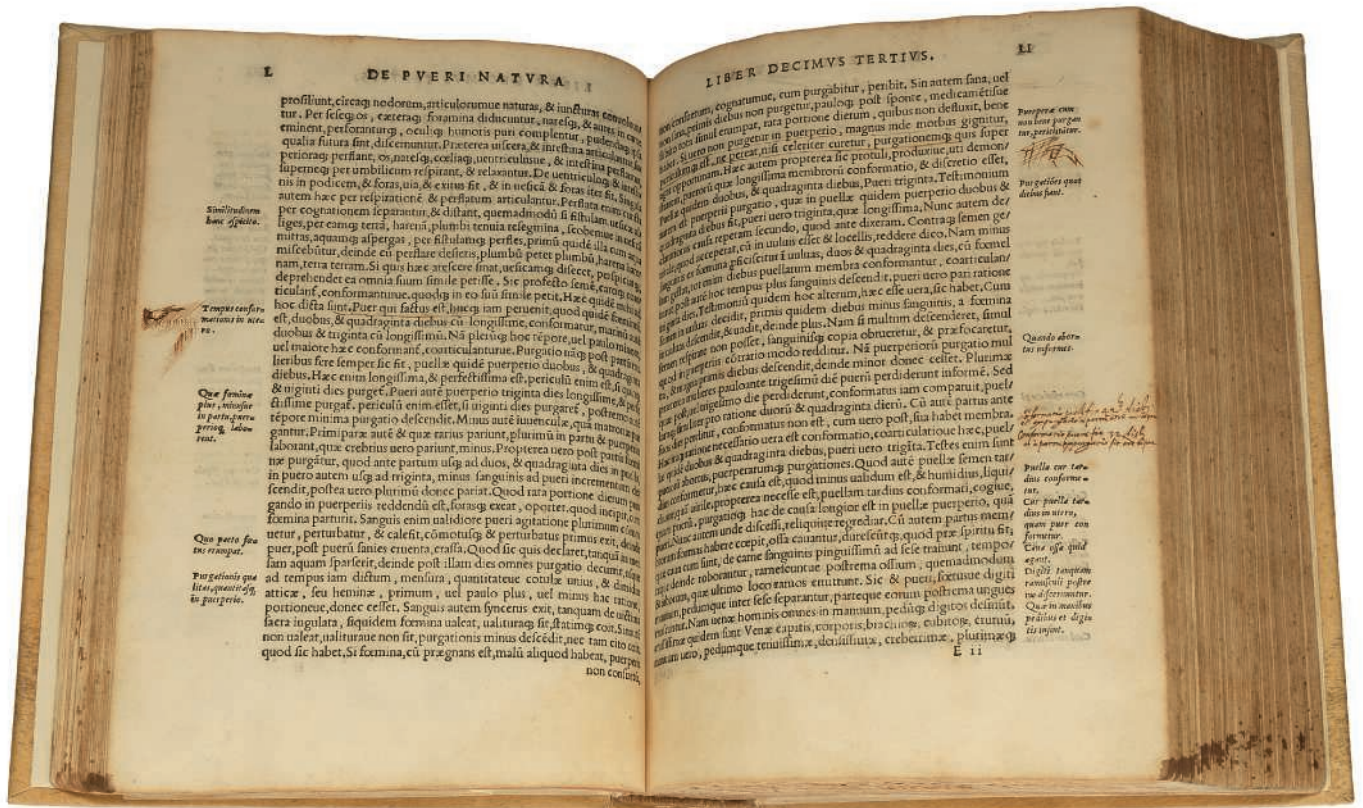 L
DE PVERI NATVRA
prosiliunt, circaq; nodorum, articulorumue naturas, & iuncturas
tur. Per seseq; os, cæteraq; foramina diducuntur, naresq;, & aures in carne
eminent, perforanturq;, oculiq; humoris puri complentur, pudendaq;
qualia futura sint, discernuntur. Præterea uiscera, & intestina articulantur,
perioraq; perflant, os, naresq;, cœliaq;, uentriculusue, & intestina perflantur
superneq; per umbilicum respirant, & relaxantur. De uentriculoq; & intesti
nis in podicem, & foras, uia, & exitus fit, & in uesicā & foras iter fit. Singula
autem hæc per respirationē & perflatum articulantur. Perflata enim cuncta
per cognationem separantur, & distant, quemadmodū si fistulam uesicæ alli
liges, per eamq; terrā, harenā, plumbi tenuia resegmina, scobemue in uesicā
mittas, aquamq; aspergas, per fistulamq; perfles, primū quidē illa cum aqua
miscebūtur, deinde cū perflare desieris, plumbū petet plumbū, harena hare
nam, terra terram. Si quis hæc arescere sinat, uesicamq; disecet, perspiciatq;,
deprehendet ea omnia suum simile petisse. Sic profecto semē, caroq;
ticulant, conformanturue, quodq; in eo suū simile petit. Hæc quidē
hoc dicta sint. Puer qui factus est, hucq; iam peruenit, quod quidē fœminæ
est, duobus, & quadraginta diebus cū longissime, conformatur, marinū autē
duobus & triginta cū longissimū. Nā plerūq; hoc tēpore, uel paulo minore,
uel maiore hæc conformant, coarticulanturue. Purgatio nāq; post partū mu
lieribus fere semper sic fit, puellæ quidē puerperio duobus, & quadraginta
diebus. Hæc enim longissima, & perfectissima est, periculū enim est, si
& uiginti dies purget. Pueri autē puerperio triginta dies longissime, & perfe
ctissime purgat, periculū enim esset, si uiginti dies purgaret, postremo autē
tēpore minima purgatio descendit. Minus autē iuuenculæ, quā matronæ pur
gantur. Primiparæ autē & quæ rarius pariunt, plurimū in partu & puerperio
laborant, quæ crebrius uero pariunt, minus. Propterea uero post partū fœmi
næ purgātur, quod ante partum usq; ad duos, & quadraginta dies in puella,
in puero autem usq; ad triginta, minus sanguinis ad pueri incrementum de
scendit, postea uero plurimū donec pariat. Quod rata portione dierum pur
gando in puerperiis reddendū est, forasq; exeat, oportet. quod incipit, cum
fœmina parturit. Sanguis enim ualidiore pueri agitatione plurimum
uetur, perturbatur, & calefit, cōmotusq; & perturbatus primus exit, deinde
puer, post puerū sanies cruenta, crassa. Quod sic quis declaret, tanquā in men
sam aquam sparserit, deinde post illam dies omnes purgatio decurrit,
ad tempus iam dictum, mensura, quantitateue cotulæ unius, & dimidiæ
atticæ, seu heminæ, primum, uel paulo plus, uel minus hac ratione,
portioneue, donec cesset. Sanguis autem syncerus exit, tanquam de uictima
sacra iugulata, siquidem fœmina ualeat, ualituraq; sit, statimq; coit. Sin autē
non ualeat, ualituraue non sit, purgationis minus descēdit, nec tam cito coit,
quod sic habet. Si fœmina, cū prægnans est, malū aliquod habeat, puerperii
non consuetū,
Similitudinem
hanc aspicito.
Tempus confor-
mationis in ute-
ro.
Quæ fœminæ
plus, minusue
in partu, puer-
perioq; labo-
rent.
Quo pacto fœ-
tus erumpat.
Purgationis qua
litas, quantitasq;
in puerperio.
LIBER DECIMVS TERTIVS.
LI
non consuetum, cognatumue, cum purgabitur, peribit. Sin autem sana, uel
non sana, primis diebus non purgetur, pauloq; post sponte, medicamētisue
subito tota simul erumpat, rata portione dierum, quibus non defluxit, bene
habet. Si uero non purgetur in puerperio, magnus inde morbus gignitur,
periculumq; est, ne pereat, nisi celeriter curetur, purgationemq; quis super
opportunam. Hæc autem propterea sic protuli, produxiue, uti demon/
strarem, puerorū quæ longissima membrorū conformatio, & discretio esset,
Puellæ quidem duobus, & quadraginta diebus, Pueri triginta. Testimonium
autem est puerperii purgatio, quæ in puellæ quidem puerperio duobus &
quadraginta diebus fit, pueri uero triginta, quæ longissima. Nunc autem de/
clarationis causa reperam secundo, quod ante dixeram. Contraq; semen ge/
quod acceperat, cū in uuluis esset & locellis, reddere dico. Nam minus
sanguinis ex fœmina ꝓficiscitur ī uuluas, duos & quadraginta dies, cū fœmel
lam gestat, tot enim diebus puellarum membra conformantur, coarticulan/
tur, post autē hoc tempus plus sanguinis descendit, pueri uero pari ratione
triginta dies. Testimoniū quidem hoc alterum, hæc esse uera, sic habet. Cum
semen in uuluas decidit, primis quidem diebus minus sanguinis, a fœmina
in uuluas descendit, & uadit, deinde plus. Nam si multum descenderet, simul
semen respirare non posset, sanguinisq; copia obrueretur, & præfocaretur,
quod in puerperiis cōtrario modo redditur. Nā puerperiorū purgatio mul
ta, & magna primis diebus descendit, deinde minor donec cesset. Plurimæ
mulieres pauloante trigesimū diē puerū perdiderunt informē. Sed
quæ post, aut trigesimo die perdiderunt, conformatus iam comparuit, puel/
lāq; similiter pro ratione duorū & quadraginta dierū. Cū autē partus ante
hos dies perditur, conformatus non est, cum uero post, sua habet membra.
Hac ratione necessario uera est conformatio, coarticulatioue hæc, puel/
læ quidē duobus & quadraginta diebus, pueri uero trigīta. Testes enim sunt
partuū abortus, puerperarumq; purgationes. Quod autē puellæ semen tar/
dius conformetur, hæc causa est, quod minus ualidum est, & humidius, liqui/
diusue q̄ uirile, propterea necesse est, puellam tardius conformari, cogiue,
quam puerū, purgatioq; hac de causa longior est in puellæ puerperio, quā
pueri. Nunc autem unde discessi, reliquiue regrediar. Cū autem partus mem/
brorum formas habere cœpit, ossa cauantur, durescūtq;, quod præ spiritu fit,
quæ cum caua cum sunt, de carne sanguinis pinguissimū ad sese trahunt, tempo/
re inde roborantur, ramescuntue postrema ossium, quemadmodum
& arborum, quæ ultimo loco ramos emittunt. Sic & pueri, fœtusue digiti
manuum, pedumque inter sese separantur, parteque eorum postrema ungues
nascuntur. Nam uenæ hominis omnes in manuum, pedūq; digitos desinūt,
crassissimæ quidem sunt Venæ capitis, corporis, brachiorū, cubitorū, crurū,
manuum uero, pedumque tenuissimæ, densissimæ, creberrimæ, plurimæq;
E ii
Puerperæ cum
non bene purgan
tur, periclitātur.
Purgatiōes quot
diebus fiant.
Quando abor-
tus informes.
Puellæ cur tar-
dius conforme-
tur.
Cur puella tar-
dius in utero,
quam puer con
formetur.
Cauæ ossa quid
agant.
Digiti tanquam
ramusculi postre
mo discernuntur.
Quæ in manibus
pedibus et digi-
tis insint.